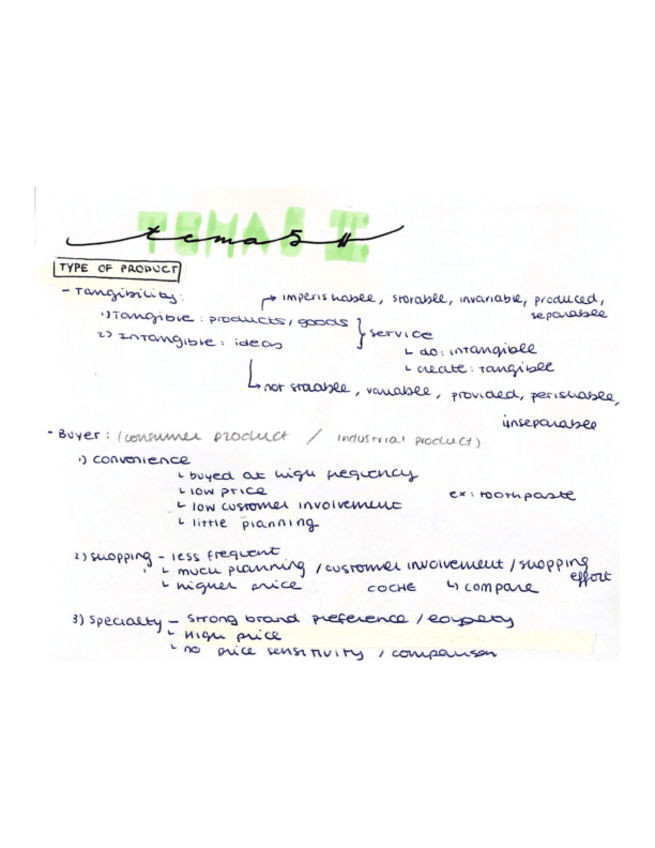 tema 5 II
TYPE OF PRODUCT
- Tangibility:
↱ imperishable, storable, invariable, produced, separable
1) Tangible: products/goods
2) Intangible: ideas
} service
↳ do: intangible
↳ create: tangible
↳ not storable, variable, provided, perishable, inseparable
- Buyer: (consumer product / industrial product)
1) convenience
↳ buyed at high frequency
↳ low price
ex: toothpaste
↳ low customer involvement
↳ little planning
2) shopping - less frequent
↳ much planning / customer involvement / shopping effort
↳ higher price COCHE ↳ compare
3) Specialty - strong brand preference /
↳ High price
↳ no price sensitivity / comparison